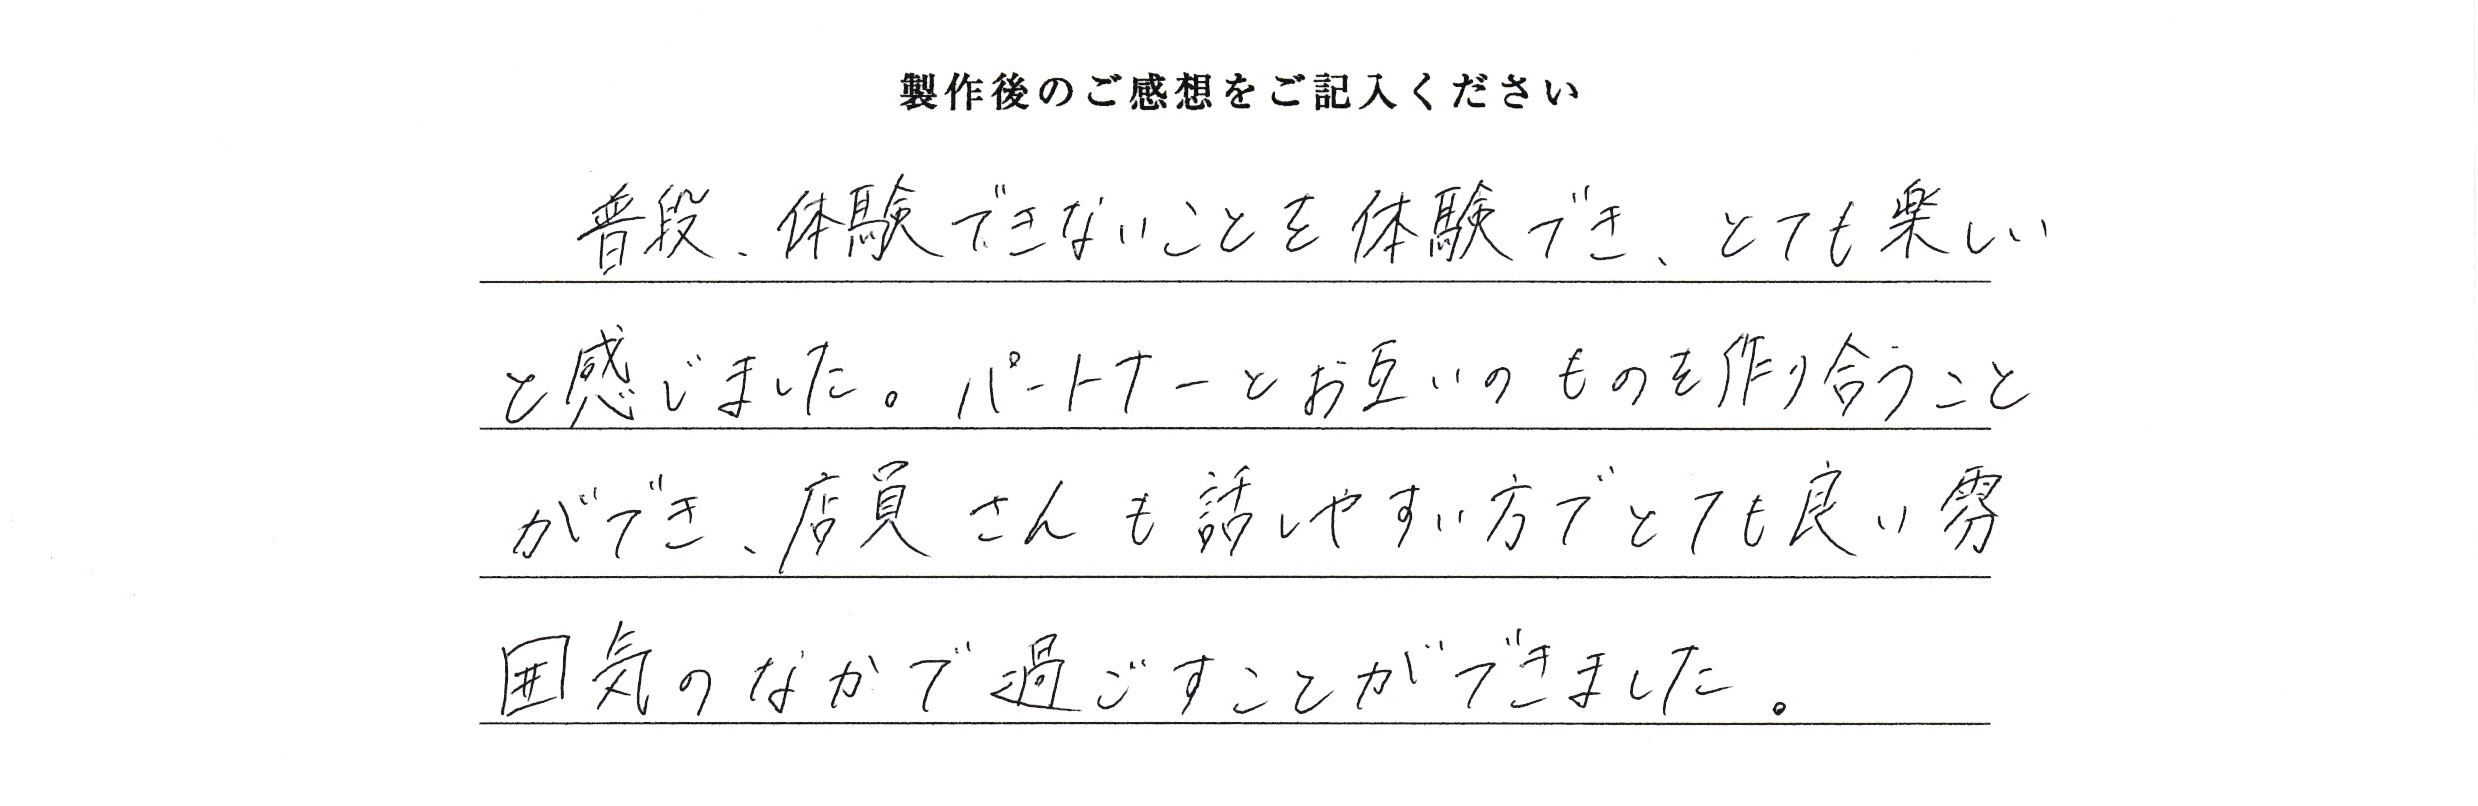 製作後のご感想をご記入ください
普段、体験できないことを体験でき、とても楽しい
と感じました。パートナーとお互いのものを作り合うこと
ができ、店員さんも話しやすい方でとても良い雰
囲気のなかで過ごすことができました。